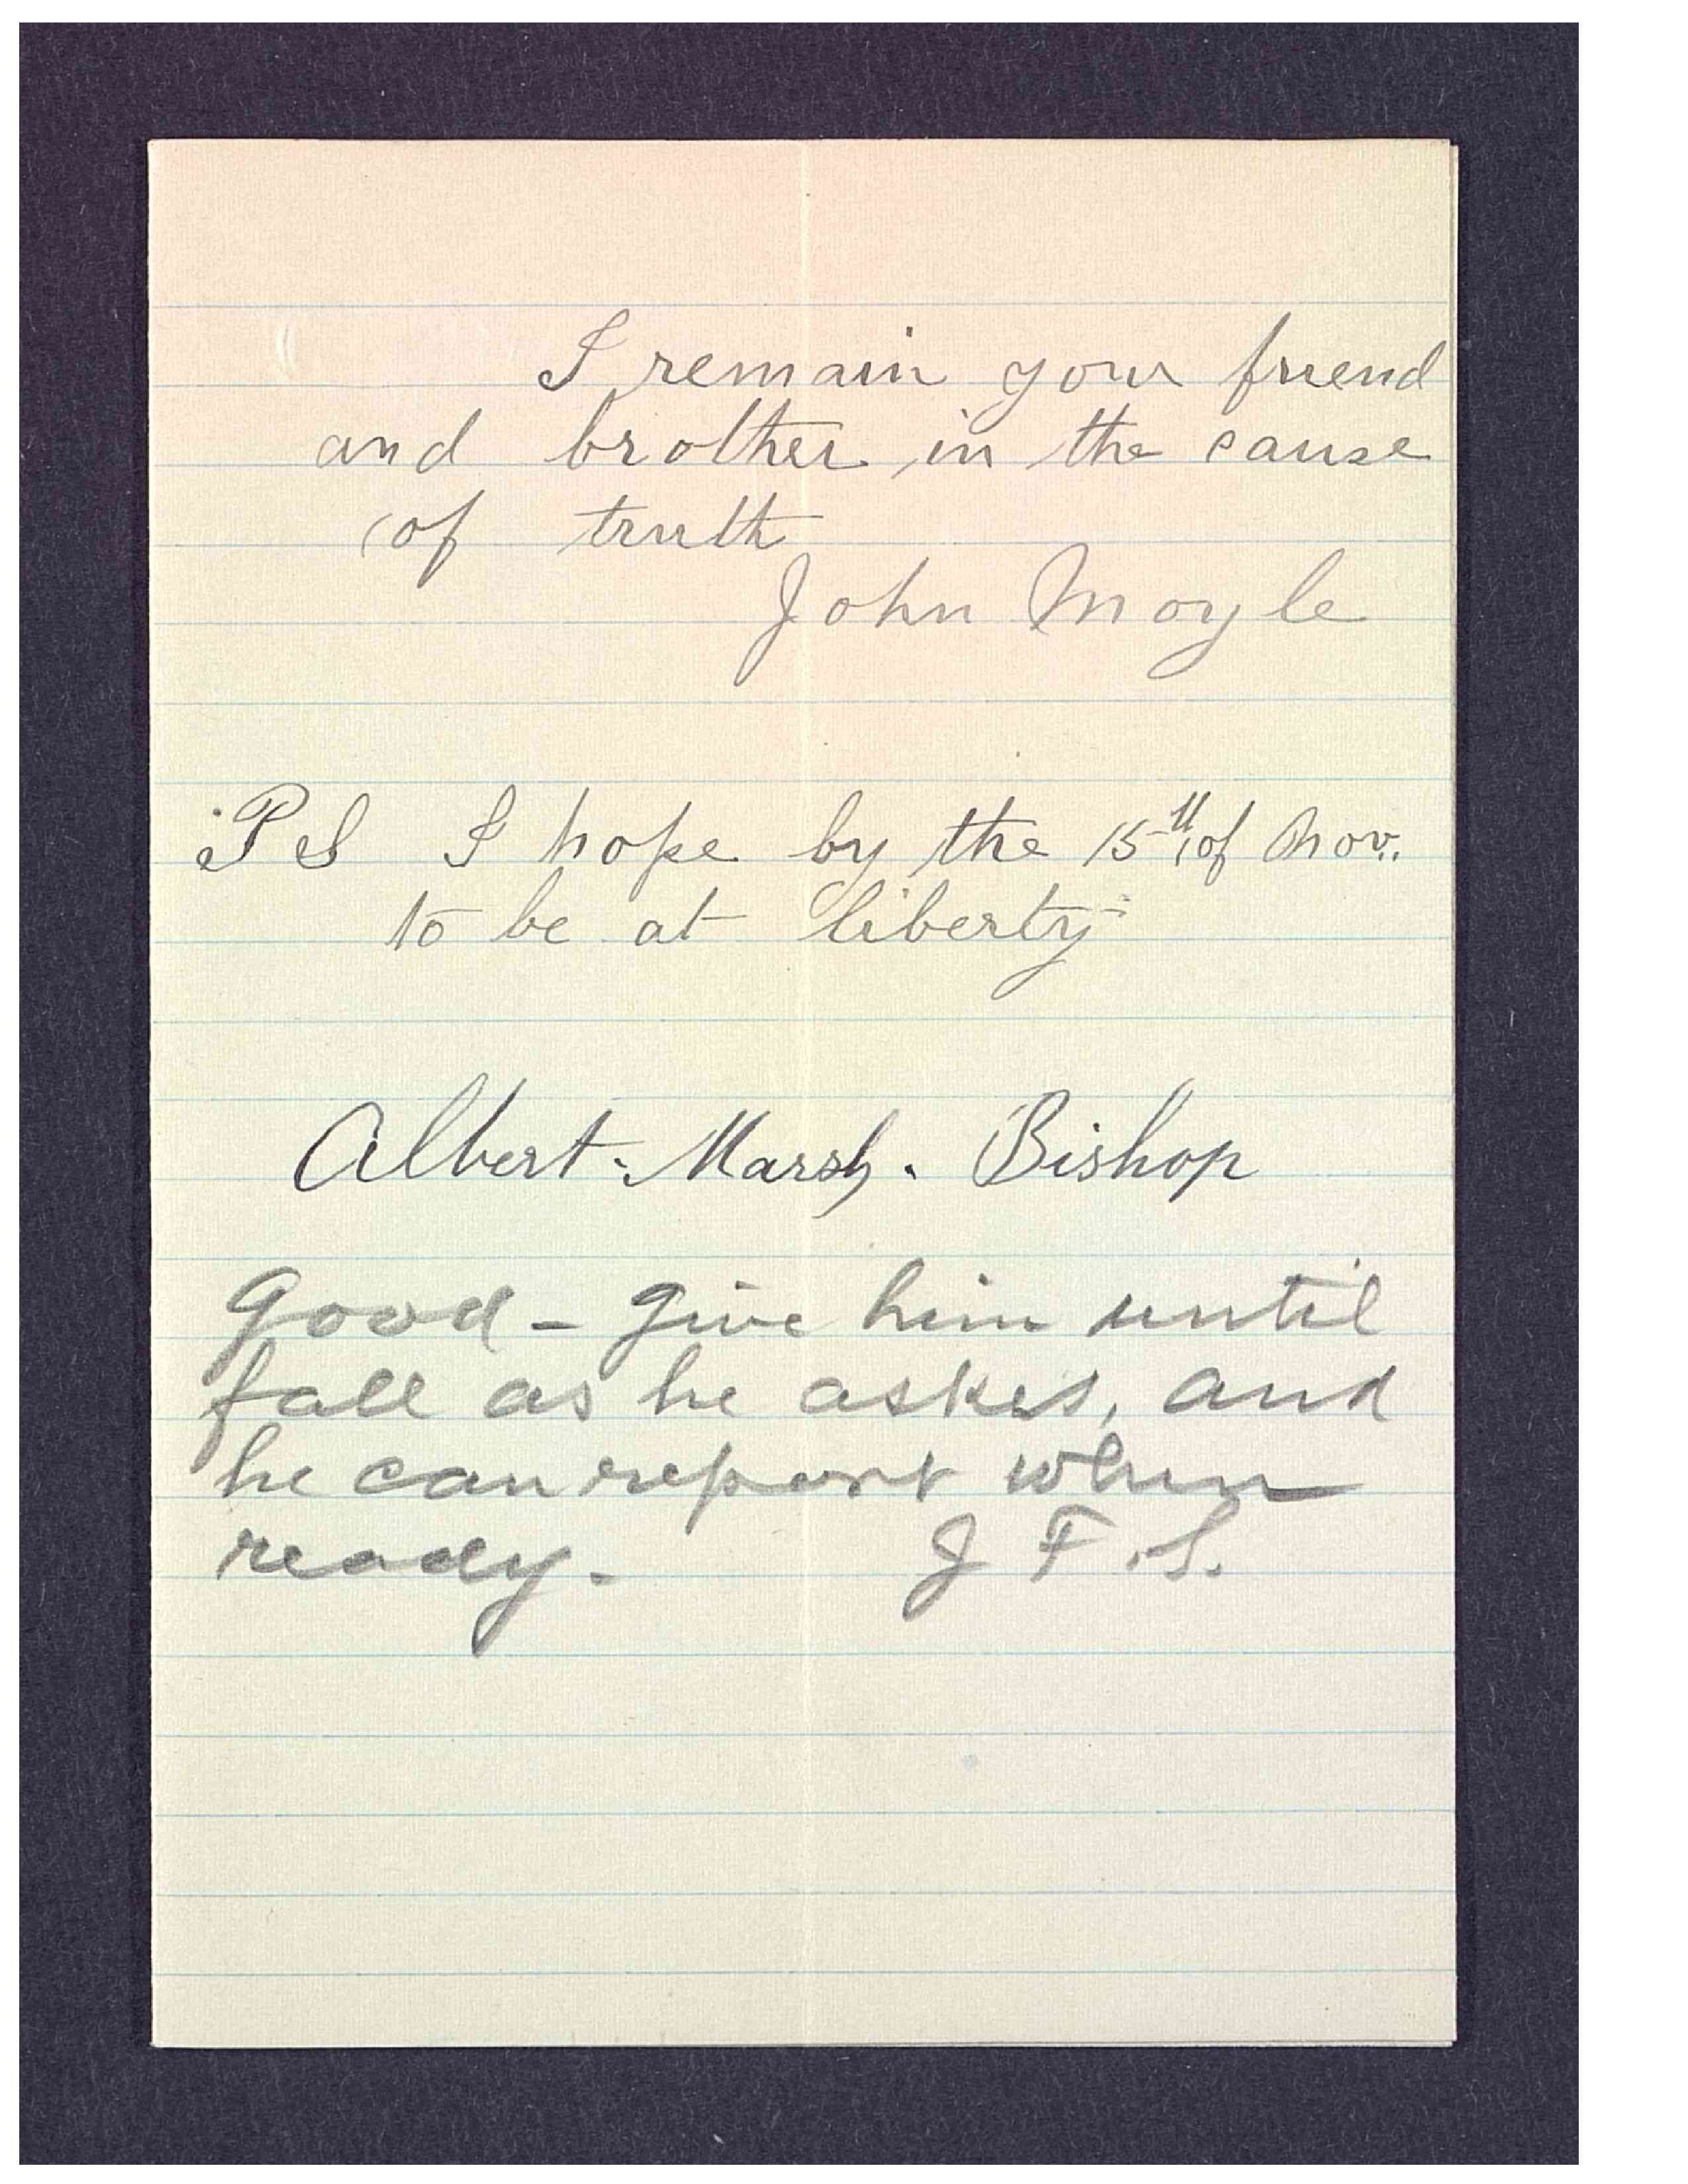 I remain your friend
and brother in the cause
of truth
John Moyle
PS I hope by the 15th of Nov.
to be at liberty
Albert Marsh. Bishop
Good - Give him until
fall as he askes, and
he can report when
ready. J F. S.